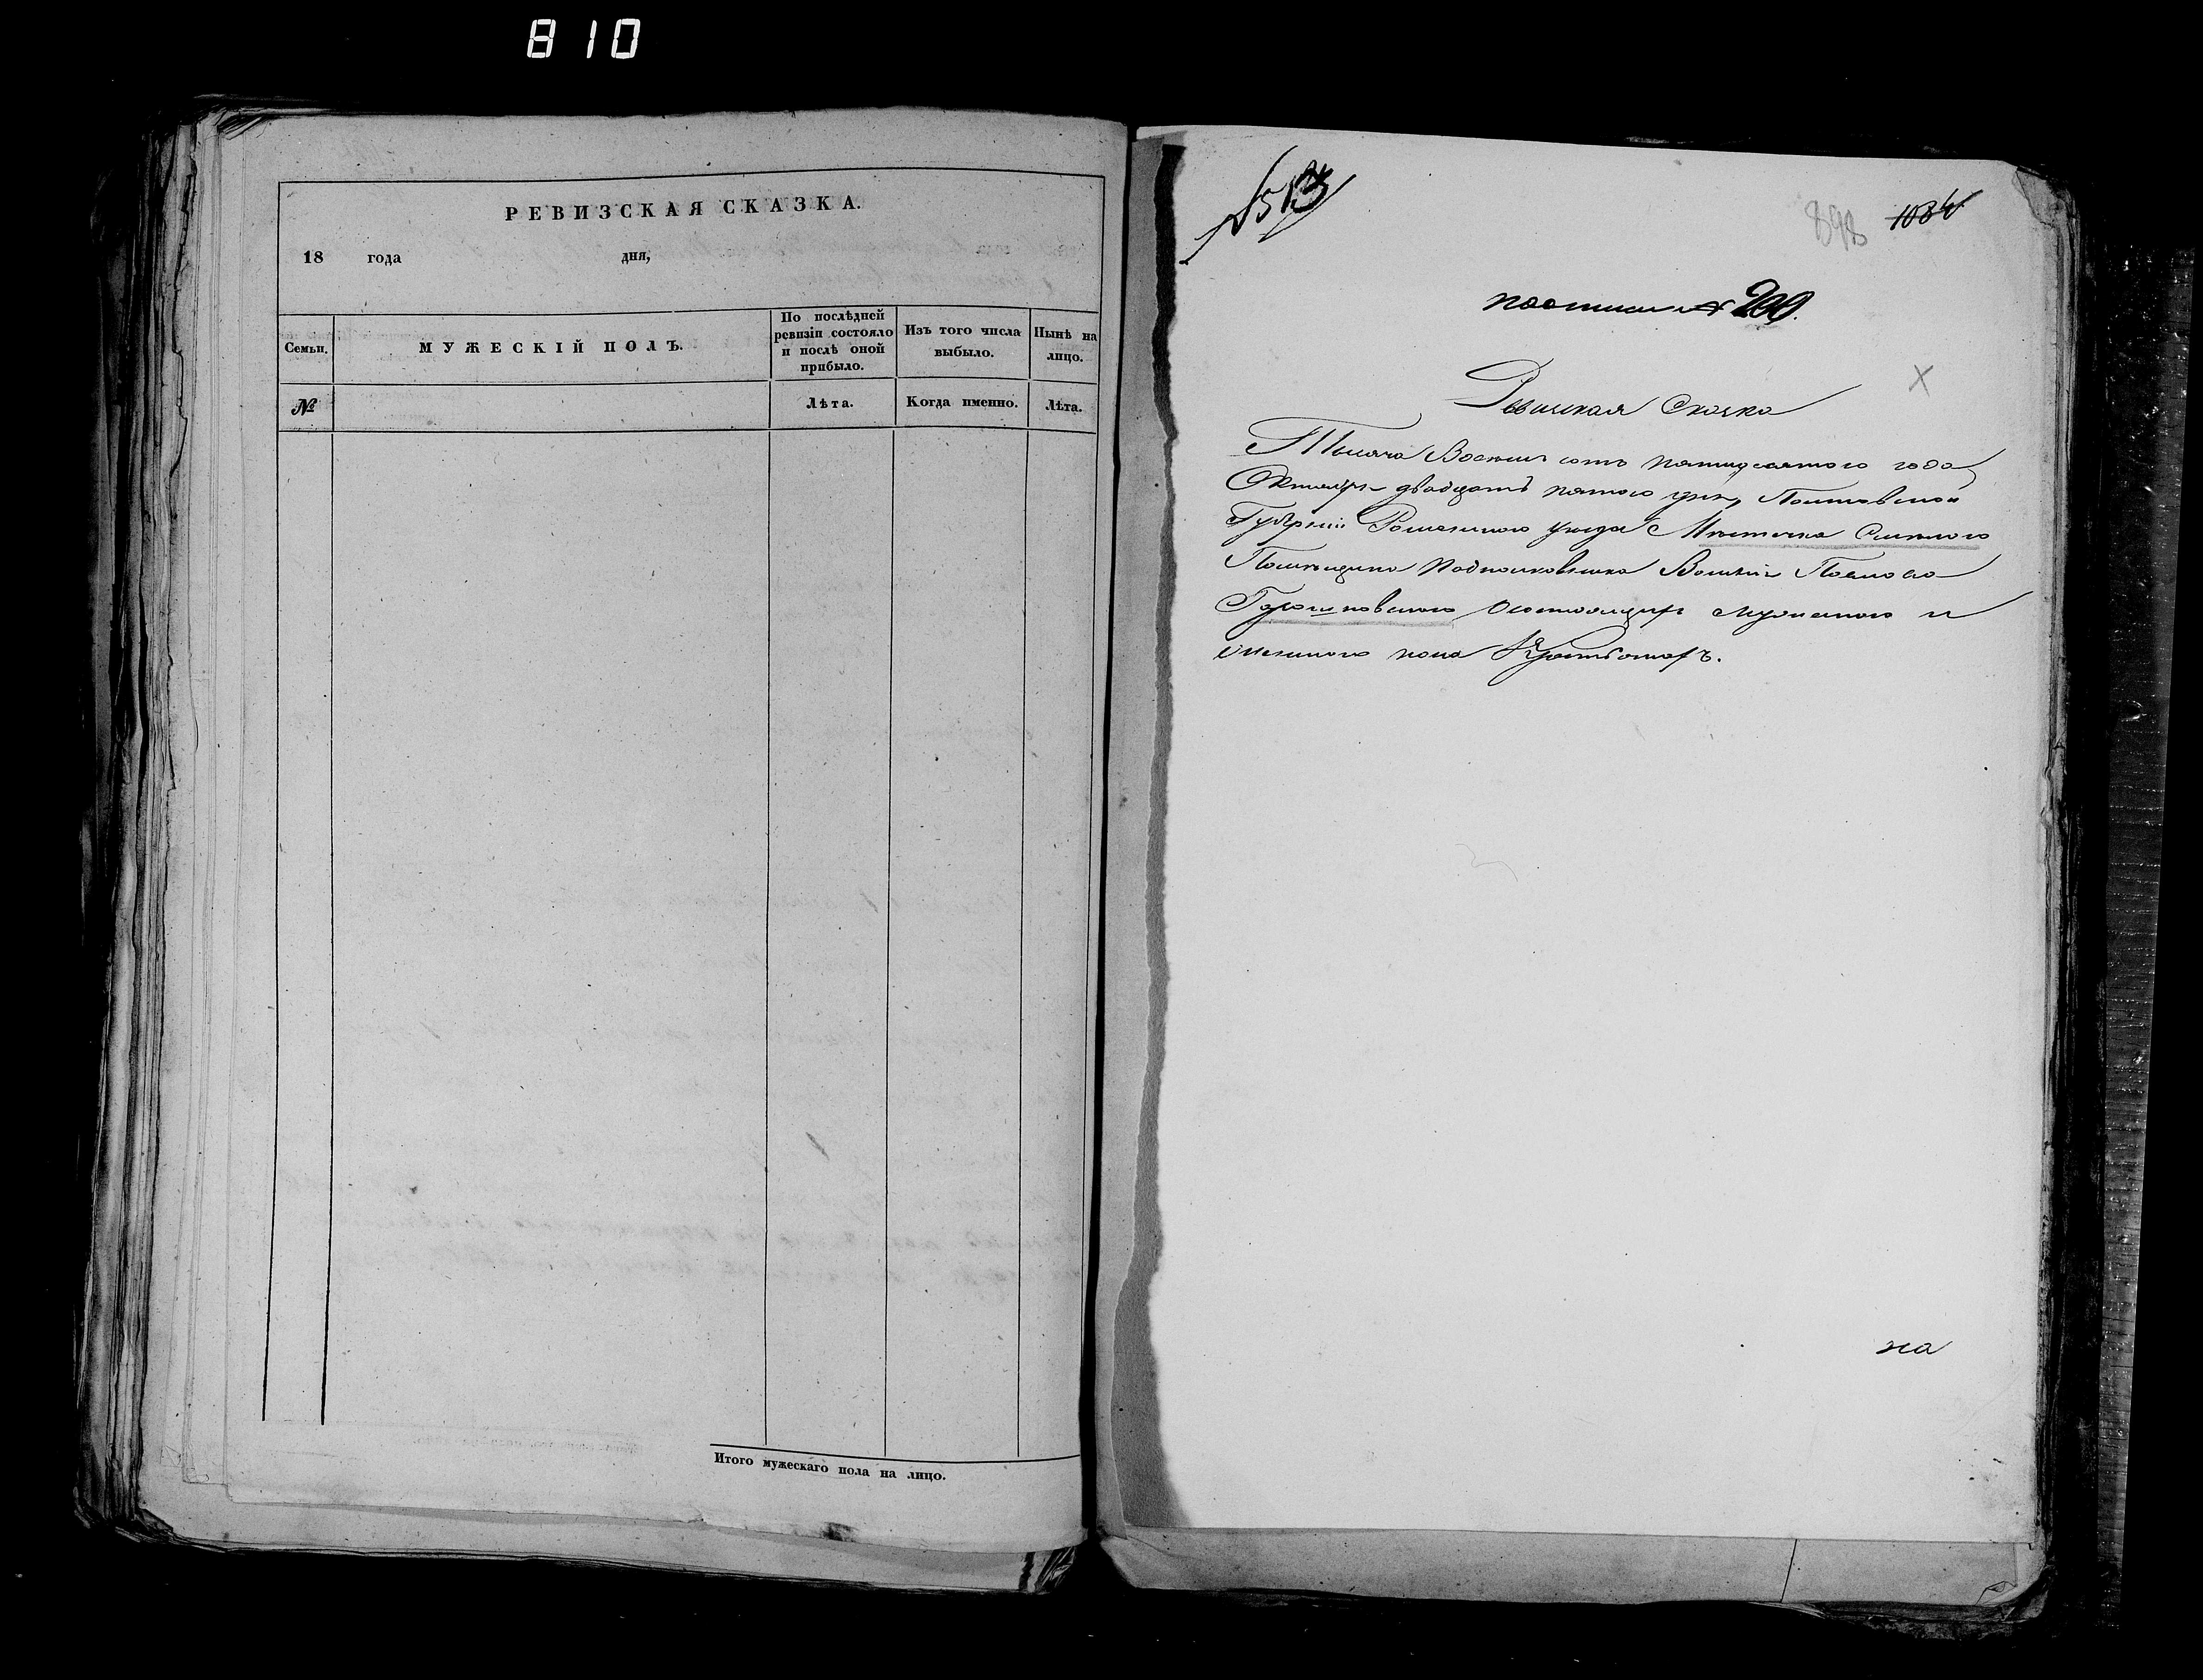 810
РЕВИЗСКАЯ СКАЗКА.
18 года дня,
Семьи. МУЖЕСКІЙ ПОЛЪ. По послѣдней ревизіи состояло и послѣ оной прибыло. Изъ того числа выбыло. Нынѣ на лицо.
№ Лѣта. Когда именно. Лѣта.
Итого мужескаго пола на лицо.
898 1034
№ 200.
Ревизская Сказка
Тысяча Восемь сотъ пятидесятого года
Октября двадцать пятого дня, Полтавской
Губерніи Роменского уезда Местечка Смелого
Помещика Подполковника Василія Павлова
состоящихъ мужеского и
женского пола
на